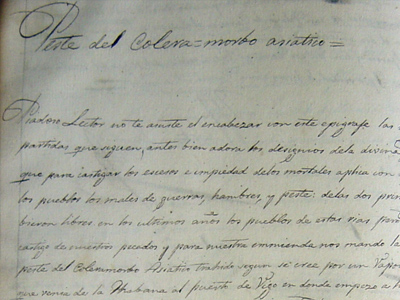 Peste del Colera=morbo asiatico=
Piadoso Lector no te asuste el encabezar con este epigrafe las
partidas que siguen, antes bien adora los designios dela divina
que para castigar los escesos e impiedad delos mortales aplica con
los pueblos los males de guerras, hambres, y peste: delas dos prim
bieron libres en los ultimos años los pueblos de estas rias, pero
castigo de nuestros pecados y para nuestra enmienda nos mando la
peste del Coleramorbo Asiatico trahido segun se cree por un Vapor
que venia de la Habana al puerto de Vigo en donde empezo a h